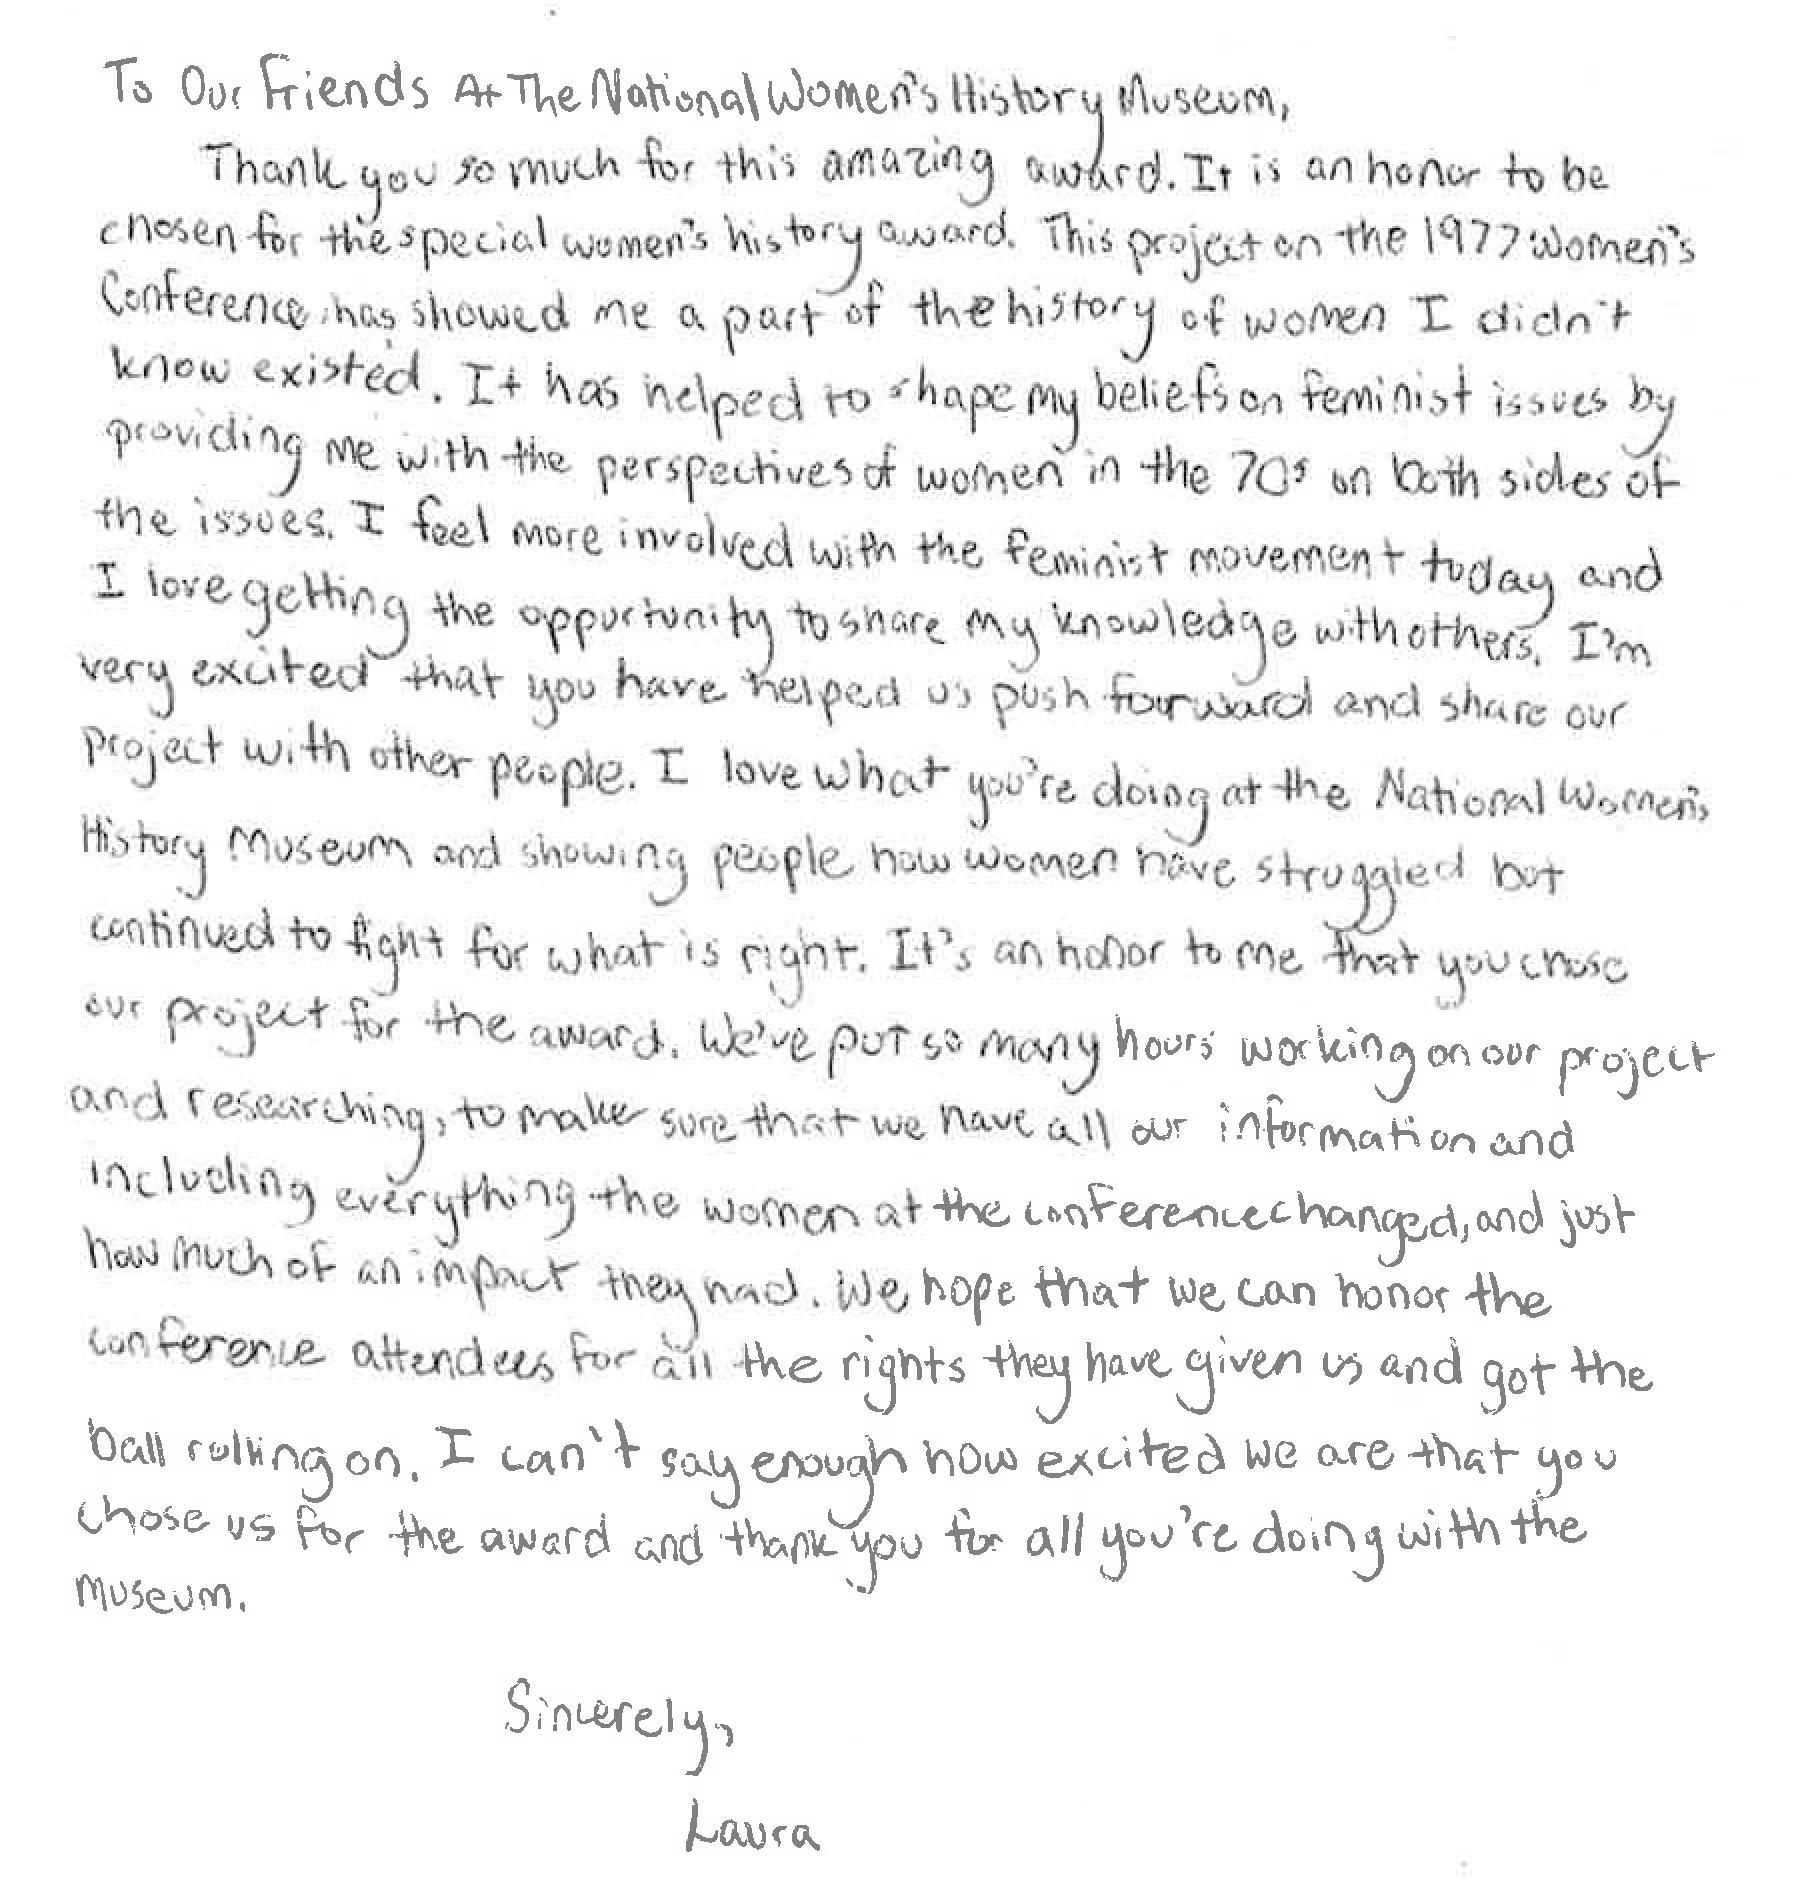 To Our Friends At The National Women's History Museum,
Thank you so much for this amazing award. It is an honor to be
chosen for the special women's history award. This project on the 1977 Women's
Conference, has showed me a part of the history of women I didn't
know existed. It has helped to shape my beliefs on feminist issues by
providing me with the perspectives of women in the 70s on both sides of
the issues. I feel more involved with the feminist movement today and
I love getting the opportunity to share my knowledge with others. I'm
very excited that you have helped us push forward and share our
project with other people. I love what you're doing at the National Women's
History Museum and showing people how women have struggled but
continued to fight for what is right. It's an honor to me that you chose
our project for the award. We've put so many hours working on our project
and researching, to make sure that we have all our information and
including everything the women at the conference changed, and just
how much of an impact they had. We hope that we can honor the
conference attendees for all the rights they have given us and got the
ball rolling on. I can't say enough how excited we are that you
chose us for the award and thank you for all you're doing with the
museum.
Sincerely,
Laura